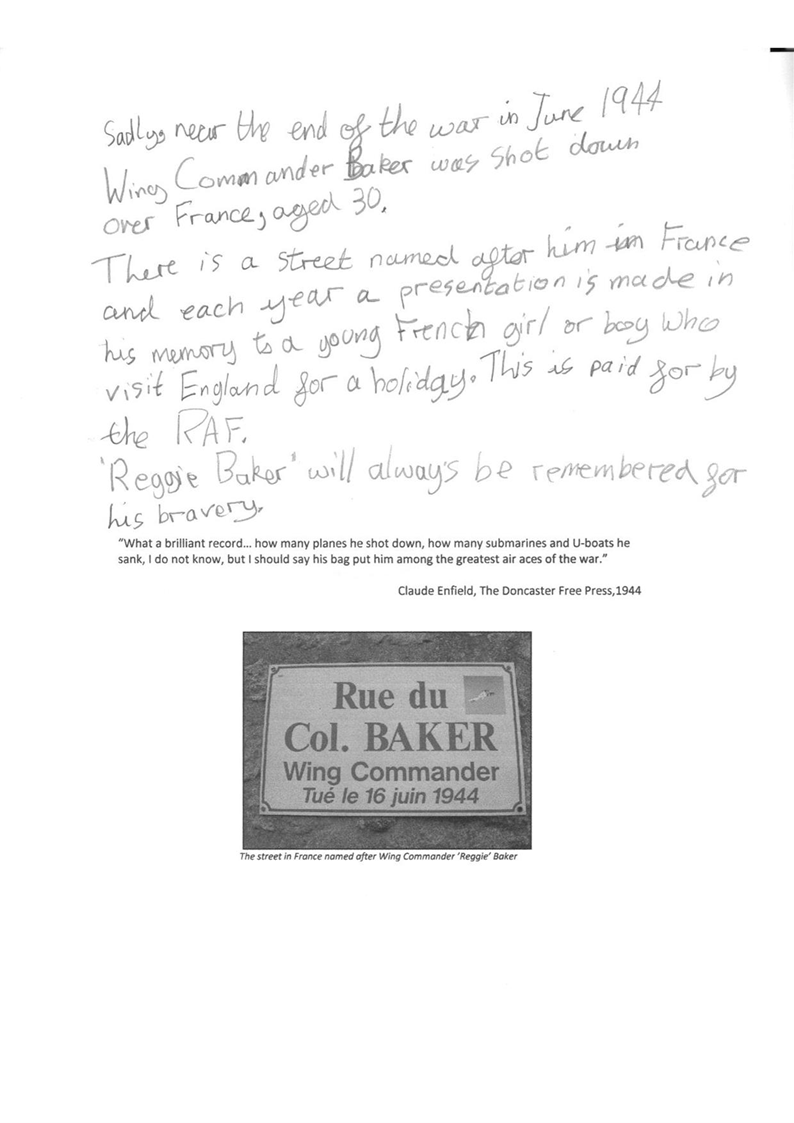 Sadly, near the end of the war in June 1944
Wing Commander Baker was shot down
over France, aged 30.
There is a street named after him in France
and each year a presentation is made in
his memory to a young French girl or boy who
visit England for a holiday. This is paid for by
the RAF.
'Reggie Baker' will always be remembered for
his bravery.
“What a brilliant record... how many planes he shot down, how many submarines and U-boats he
sank, I do not know, but I should say his bag put him among the greatest air aces of the war.”
Claude Enfield, The Doncaster Free Press,1944
Rue du
Col. BAKER
Wing Commander
Tué le 16 juin 1944
The street in France named after Wing Commander ‘Reggie’ Baker